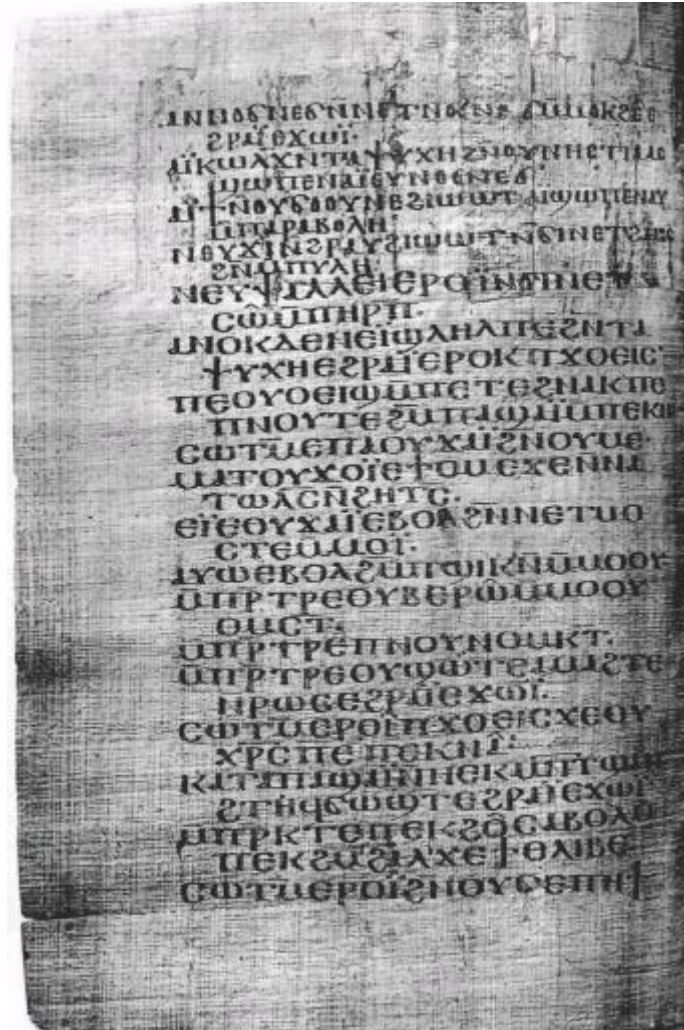 ⲁⲛⲛⲟϭⲛⲉϭⲛ̄ⲛⲉⲧⲛⲟϭⲛⲉϭ ⲙ̄ⲙⲟⲕϩⲉⲉ
ϩⲣⲁⲓ̈ⲉϫⲱⲓ̈·
ⲁⲓ̈ⲕⲱⲗϫⲛⲧⲁⲯⲩⲭⲏϩⲛⲟⲩⲛⲏⲥⲧⲓⲁⲁⲥ
ϣⲱⲡⲉⲛⲁⲓ̈ⲉⲩⲛⲟϭⲛⲉϭ·
ⲁⲓ̈ϯⲛⲟⲩϭⲟⲟⲩⲛⲉϩⲓⲱⲱⲧ ⲁⲓϣⲱⲡⲉⲛⲁⲩ
ⲙ̄ⲡⲁⲣⲁⲃⲟⲗⲏ·
ⲛⲉⲩϫⲓⲛ̄ϩⲣⲁⲩϩⲓⲱⲱⲧⲛ̄ϭⲓⲛⲉⲧϩⲙⲟⲟⲥ
ϩⲛⲙ̄ⲡⲩⲗⲏ·
ⲛⲉⲩⲯⲁⲗⲗⲉⲓⲉⲣⲟⲓ̈ⲛϭⲓⲛⲉⲧ
ⲥⲱⲙ̄ⲡⲏⲣⲡ·
ⲁⲛⲟⲕⲇⲉⲛⲉⲓ̈ϣⲗⲏⲗⲡⲉϩⲛⲧⲁ
ⲯⲩⲭⲏⲉϩⲣⲁⲓ̈ⲉⲣⲟⲕⲡϫⲟⲉⲓⲥ·
ⲡⲉⲟⲩⲟⲉⲓϣⲙ̄ⲡⲉⲧⲉϩⲛⲁⲕⲡⲉ
ⲡⲛⲟⲩⲧⲉϩⲙ̄ⲡⲁϣⲁⲓ̈ⲙ̄ⲡⲉⲕⲛⲁ
ⲥⲱⲧⲙ̄ⲉⲡⲁⲟⲩϫⲁⲓ̈ϩⲛⲟⲩⲙⲉ·
ⲙⲁⲧⲟⲩϫⲟⲓ̈ⲉⲡⲟⲙⲉϫⲉⲛ̄ⲛⲁ
ⲧⲱⲗⲥⲛ̄ϩⲏⲧϥ·
ⲉⲓ̈ⲉⲟⲩϫⲁⲓ̈ⲉⲃⲟⲗϩⲛ̄ⲛⲉⲧⲙⲟ
ⲥⲧⲉⲙ̄ⲙⲟⲓ̈·
ⲁⲩⲱⲉⲃⲟⲗϩⲙ̄ⲡϣⲓⲕⲛ̄ⲙ̄ⲙⲟⲟⲩ
ⲙ̄ⲡⲣ̄ⲧⲣⲉⲟⲩⲃⲉⲣⲱ̄ⲙ̄ⲙⲟⲟⲩ
ⲟⲙⲥⲧ·
ⲙ̄ⲡⲣ̄ⲧⲣⲉⲡⲛⲟⲩⲛⲟⲙⲕⲧ·
ⲙ̄ⲡⲣ̄ⲧⲣⲉⲟⲩϣⲱⲧⲉⲁⲙⲁϩⲧⲉ
ⲛ̄ⲣⲱⲥⲉϩⲣⲁⲓ̈ⲉϫⲱⲓ̈·
ⲥⲱⲧⲙ̄ⲉⲣⲟⲓ̈ⲡϫⲟⲉⲓⲥϫⲉⲟⲩ
ⲭⲣⲥⲡⲉⲡⲉⲕⲛⲁ·
ⲕⲁⲧⲁⲡⲁϣⲁⲓ̈ⲛ̄ⲛⲉⲕⲙⲛ̄ⲧϣⲁⲛ
ϩⲧⲏϥϭⲱϣⲧⲉϩⲣⲁⲓ̈ⲉϫⲱⲓ̈
ⲙ̄ⲡⲣ̄ⲕⲧⲉⲡⲉⲕϩⲟⲥⲁⲃⲟⲗⲙ̄
ⲡⲉⲕϩⲙ̄ϩⲁⲗϫⲉϯⲑⲗⲓⲃⲉ·
ⲥⲱⲧⲙ̄ⲉⲣⲟⲓ̈ϩⲛⲟⲩϭⲉⲡⲏ·ϯ